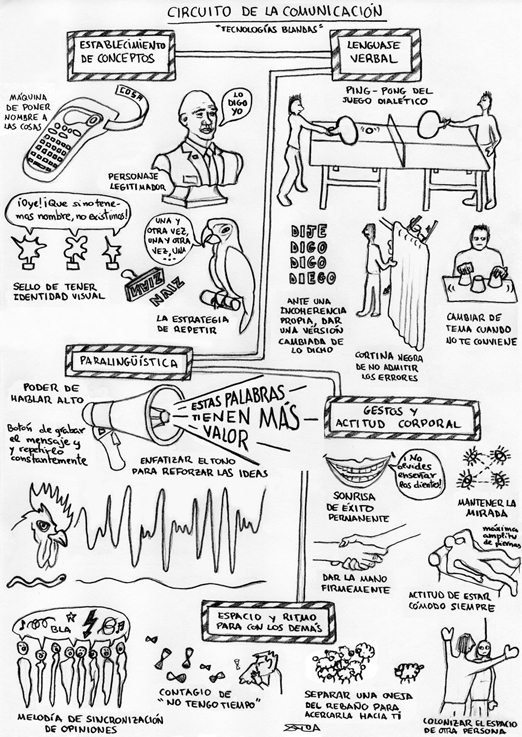 CIRCUITO DE LA COMUNICACIÓN
"TECNOLOGÍAS BLANDAS"
ESTABLECIMIENTO
DE CONCEPTOS
LENGUAJE
VERBAL
MÁQUINA
DE PONER
NOMBRE A
LAS COSAS
COSA
LO
DIGO
YO
PERSONAJE
LEGITIMADOR
PING-PONG DEL
JUEGO DIALÉTICO
¡Oye! ¡Que si no tene-
mos nombre, no existimos!
SELLO DE TENER
IDENTIDAD VISUAL
NAIZ
UNA Y
OTRA VEZ,
UNA Y OTRA
VEZ, UNA
...
LA ESTRATEGIA
DE REPETIR
DIJE
DIGO
DIGO
DIEGO
ANTE UNA
INCOHERENCIA
PROPIA, DAR
UNA VERSIÓN
CAMBIADA DE
LO DICHO
CORTINA NEGRA
DE NO ADMITIR
LOS ERRORES
CAMBIAR DE
TEMA CUANDO
NO TE CONVIENE
PARALINGÜÍSTICA
PODER DE
HABLAR ALTO
Botón de grabar
el mensaje y
y repetirlo
constantemente
ESTAS PALABRAS
TIENEN MÁS
VALOR
ENFATIZAR EL TONO
PARA REFORZAR LAS IDEAS
GESTOS Y
ACTITUD CORPORAL
¡No
olvides
enseñar
los dientes!
SONRISA
DE ÉXITO
PERMANENTE
MANTENER LA
MIRADA
DAR LA MANO
FIRMEMENTE
máxima
amplitud
de piernas
ACTITUD DE ESTAR
CÓMODO SIEMPRE
ESPACIO Y RITMO
PARA CON LOS DEMÁS
BLA
MELODÍA DE SINCRONIZACIÓN
DE OPINIONES
CONTAGIO DE
"NO TENGO TIEMPO"
SEPARAR UNA OVEJA
DEL REBAÑO PARA
ACERCARLA HACIA TÍ
COLONIZAR EL ESPACIO
DE OTRA PERSONA